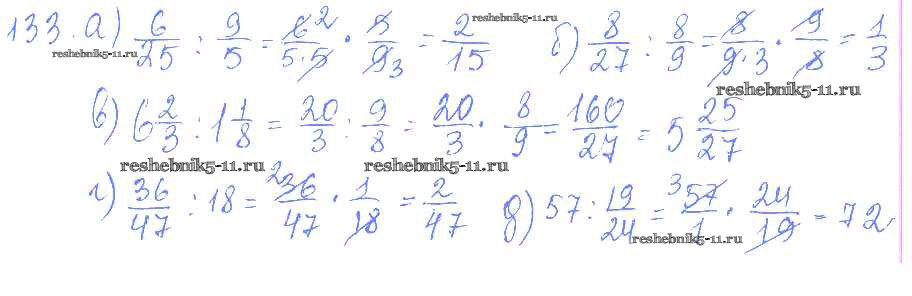 133. а) 6/25 : 9/5 = 6²/5·5 · 5/9₃ = 2/15 б) 8/27 : 8/9 = 8/9·3 · 9/8 = 1/3
в) 6 2/3 : 1 1/8 = 20/3 : 9/8 = 20/3 · 8/9 = 160/27 = 5 25/27
г) 36/47 : 18 = ²36/47 · 1/18 = 2/47 д) 57 : 19/24 = ³57/1 · 24/19 = 72
reshebnik5-11.ru
reshebnik5-11.ru
reshebnik5-11.ru
reshebnik5-11.ru
reshebnik5-11.ru
reshebnik5-11.ru